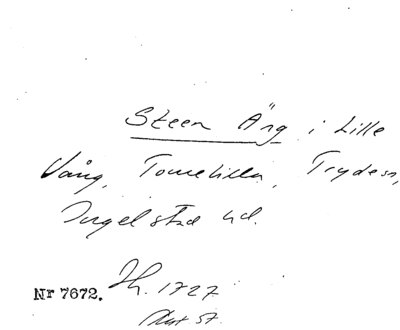 Steen Äng i Lille
Vång, Tomelilla, Trydesn,
Ingelstad hd.
Nr 7672. Jh. 1727
Akt 57.